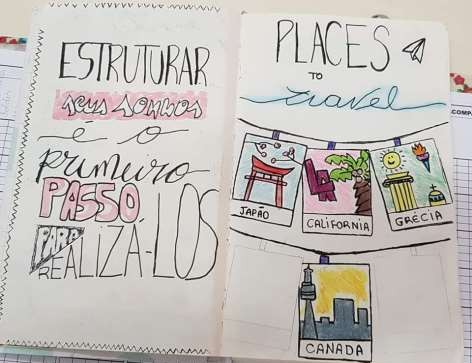 ESTRUTURAR
seus sonhos
é o
primeiro
PASSO
PARA
REALIZÁ-LOS
PLACES
TO
travel
JAPÃO
CALIFORNIA
GRÉCIA
CANADA
COMPA